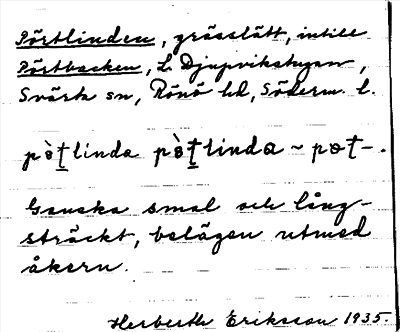 Pörtlinden, grässlätt, intill
Pörtbacken, L. Djupvikstugan,
Svärta sn, Rönö hd, Söderm. l.
pò̀ṯlinda pò̀ṯlinda ~ pɵt-.
Ganska smal och lång-
sträckt, belägen utmed
åkern.
Herberth Eriksson 1935.